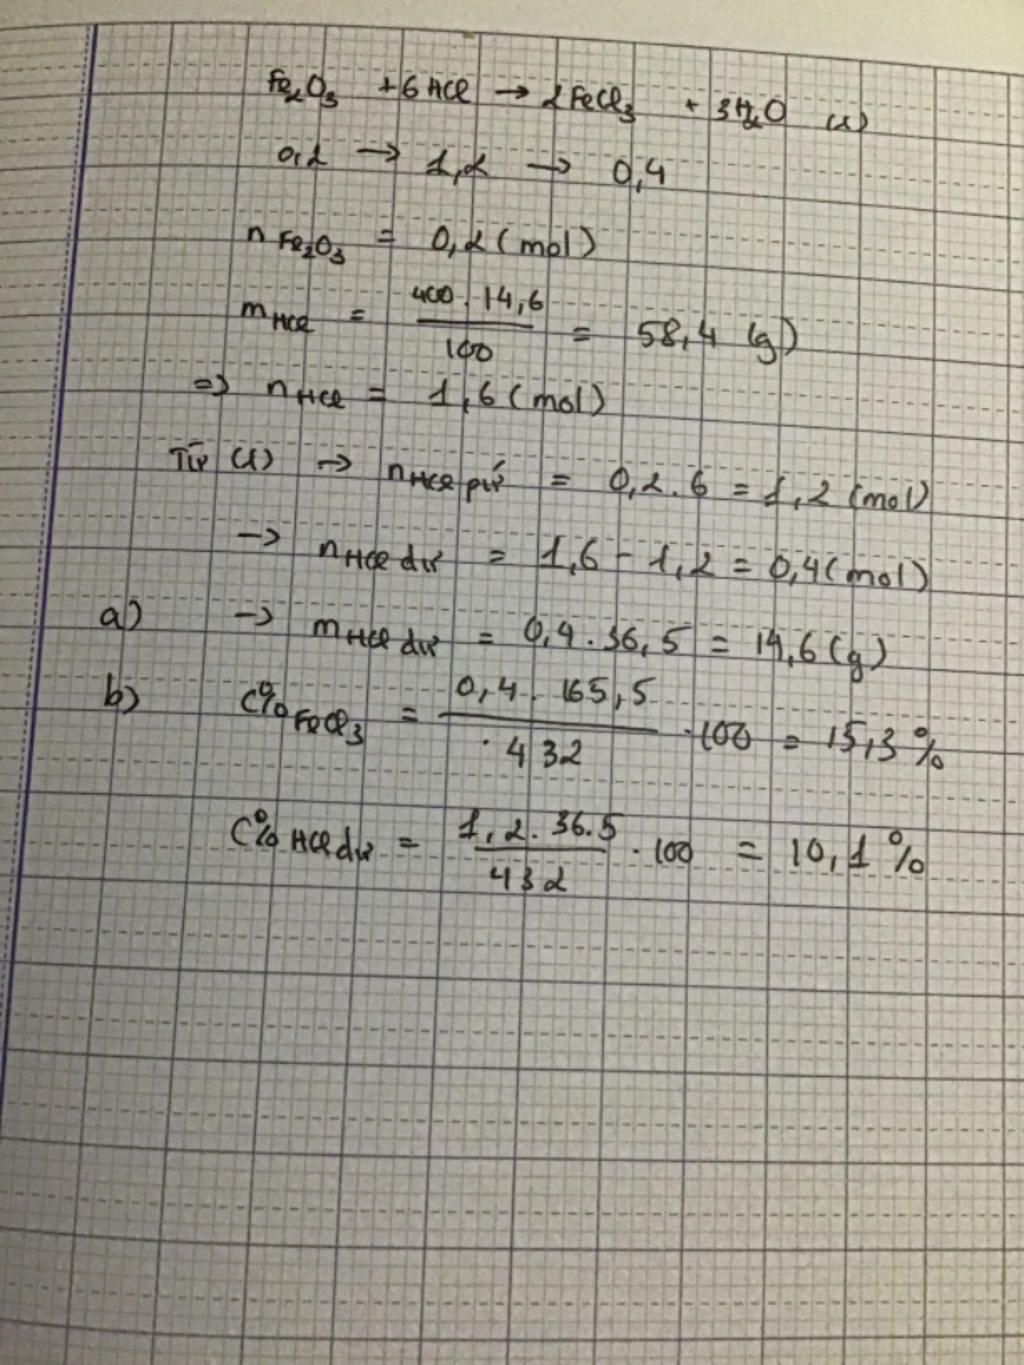 Fe₂O₃ + 6HCl → 2FeCl₃ + 3H₂O (1)
0,2 → 1,2 → 0,4
n Fe₂O₃ = 0,2 (mol)
m HCl = 400 . 14,6 / 100 = 58,4 (g)
=> n HCl = 1,6 (mol)
Từ (1) → n HCl pứ = 0,2 . 6 = 1,2 (mol)
→ n HCl dư = 1,6 - 1,2 = 0,4 (mol)
a) → m HCl dư = 0,4 . 36,5 = 14,6 (g)
b) C% FeCl₃ = 0,4 . 165,5 / 432 . 100 = 15,3 %
C% HCl dư = 1,2 . 36.5 / 432 . 100 = 10,1 %